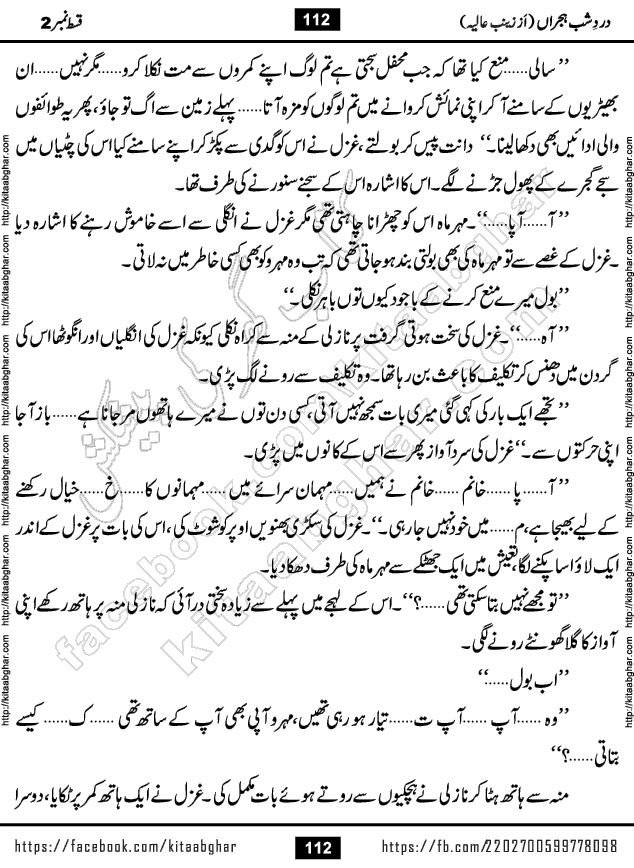 دردِ شب ہجراں (از زینب عالیہ)
112
قسط نمبر 2
’’سالی……منع کیا تھا کہ جب محفل سجتی ہے تم لوگ اپنے کمروں سے مت نکلا کرو……مگر نہیں……ان
بھیڑیوں کے سامنے آ کر اپنی نمائش کروانے میں تم لوگوں کو مزہ آتا……پہلے زمین سے اگ تو جاؤ، پھر یہ طوائفوں
والی ادائیں بھی دکھا لینا۔‘‘ دانت پیس کر بولتے، غزل نے اس کو گدی سے پکڑ کر اپنے سامنے کیا اس کی چٹیاں میں
سجے گجرے کے پھول جڑنے لگے۔ اس کا اشارہ اس کے سجنے سنورنے کی طرف تھا۔
’’آ……آپا……‘‘۔مہرماہ اس کو چھڑانا چاہتی تھی مگر غزل نے انگلی سے اسے خاموش رہنے کا اشارہ دیا
۔غزل کے غصے سے تو مہرماہ کی بھی بولتی بند ہو جاتی تھی کہ تب وہ مہرو کو بھی کسی خاطر میں نہ لاتی۔
’’بول میرے منع کرنے کے باجود کیوں توں باہر نکلی۔‘‘
’’آہ……‘‘۔غزل کی سخت ہوتی گرفت پر نازلی کے منہ سے کراہ نکلی کیونکہ غزل کی انگلیاں اور انگوٹھا اس کی
گردن میں دھنس کر تکلیف کا باعث بن رہا تھا۔ وہ تکلیف سے رونے لگ پڑی۔
’’تجھے ایک بار کی کہی گئی میری بات سمجھ نہیں آتی، کسی دن توں نے میرے ہاتھوں مر جانا ہے……باز آ جا
اپنی حرکتوں سے۔‘‘غزل کی سرد آواز پھر سے اس کے کانوں میں پڑی۔
’’آ……پا……خانم……خانم نے ہمیں……مہمان سرائے میں……مہمانوں کا……خ……خیال رکھنے
کے لیے بھیجا ہے، م……میں خود نہیں جا رہی۔‘‘۔غزل کی سکڑی بھنویں اوپر کو شوٹ کی، اس کی بات پر غزل کے اندر
ایک لاؤا سا پکنے لگا، تعیش میں ایک جھٹکے سے مہرماہ کی طرف دھکا دیا۔
’’تو مجھے نہیں بتا سکتی تھی……؟‘‘۔اس کے لہجے میں پہلے سے زیادہ سختی در آئی کہ نازلی منہ پر ہاتھ رکھے اپنی
آواز کا گلا گھونٹے رونے لگی۔
’’اب بول……‘‘
’’وہ……آپ……آپ ت……تیار ہو رہی تھیں، مہرو آپی بھی آپ کے ساتھ تھی……ک……کیسے
بتاتی……؟‘‘
منہ سے ہاتھ ہٹا کر نازلی نے ہچکیوں سے روتے ہوئے بات مکمل کی۔ غزل نے ایک ہاتھ کمر پر ٹکایا، دوسرا
http://kitaabghar.com http://kitaabghar.com http://kitaabghar.com http://kitaabghar.com http://kitaabghar.com http://kitaabghar.com
http://kitaabghar.com http://kitaabghar.com http://kitaabghar.com http://kitaabghar.com http://kitaabghar.com http://kitaabghar.com
کتاب گھر کی پیشکش
facebook.com/kitaabghar
kitaabghar.com
https://facebook.com/kitaabghar
112
https://fb.com/2202700599778098